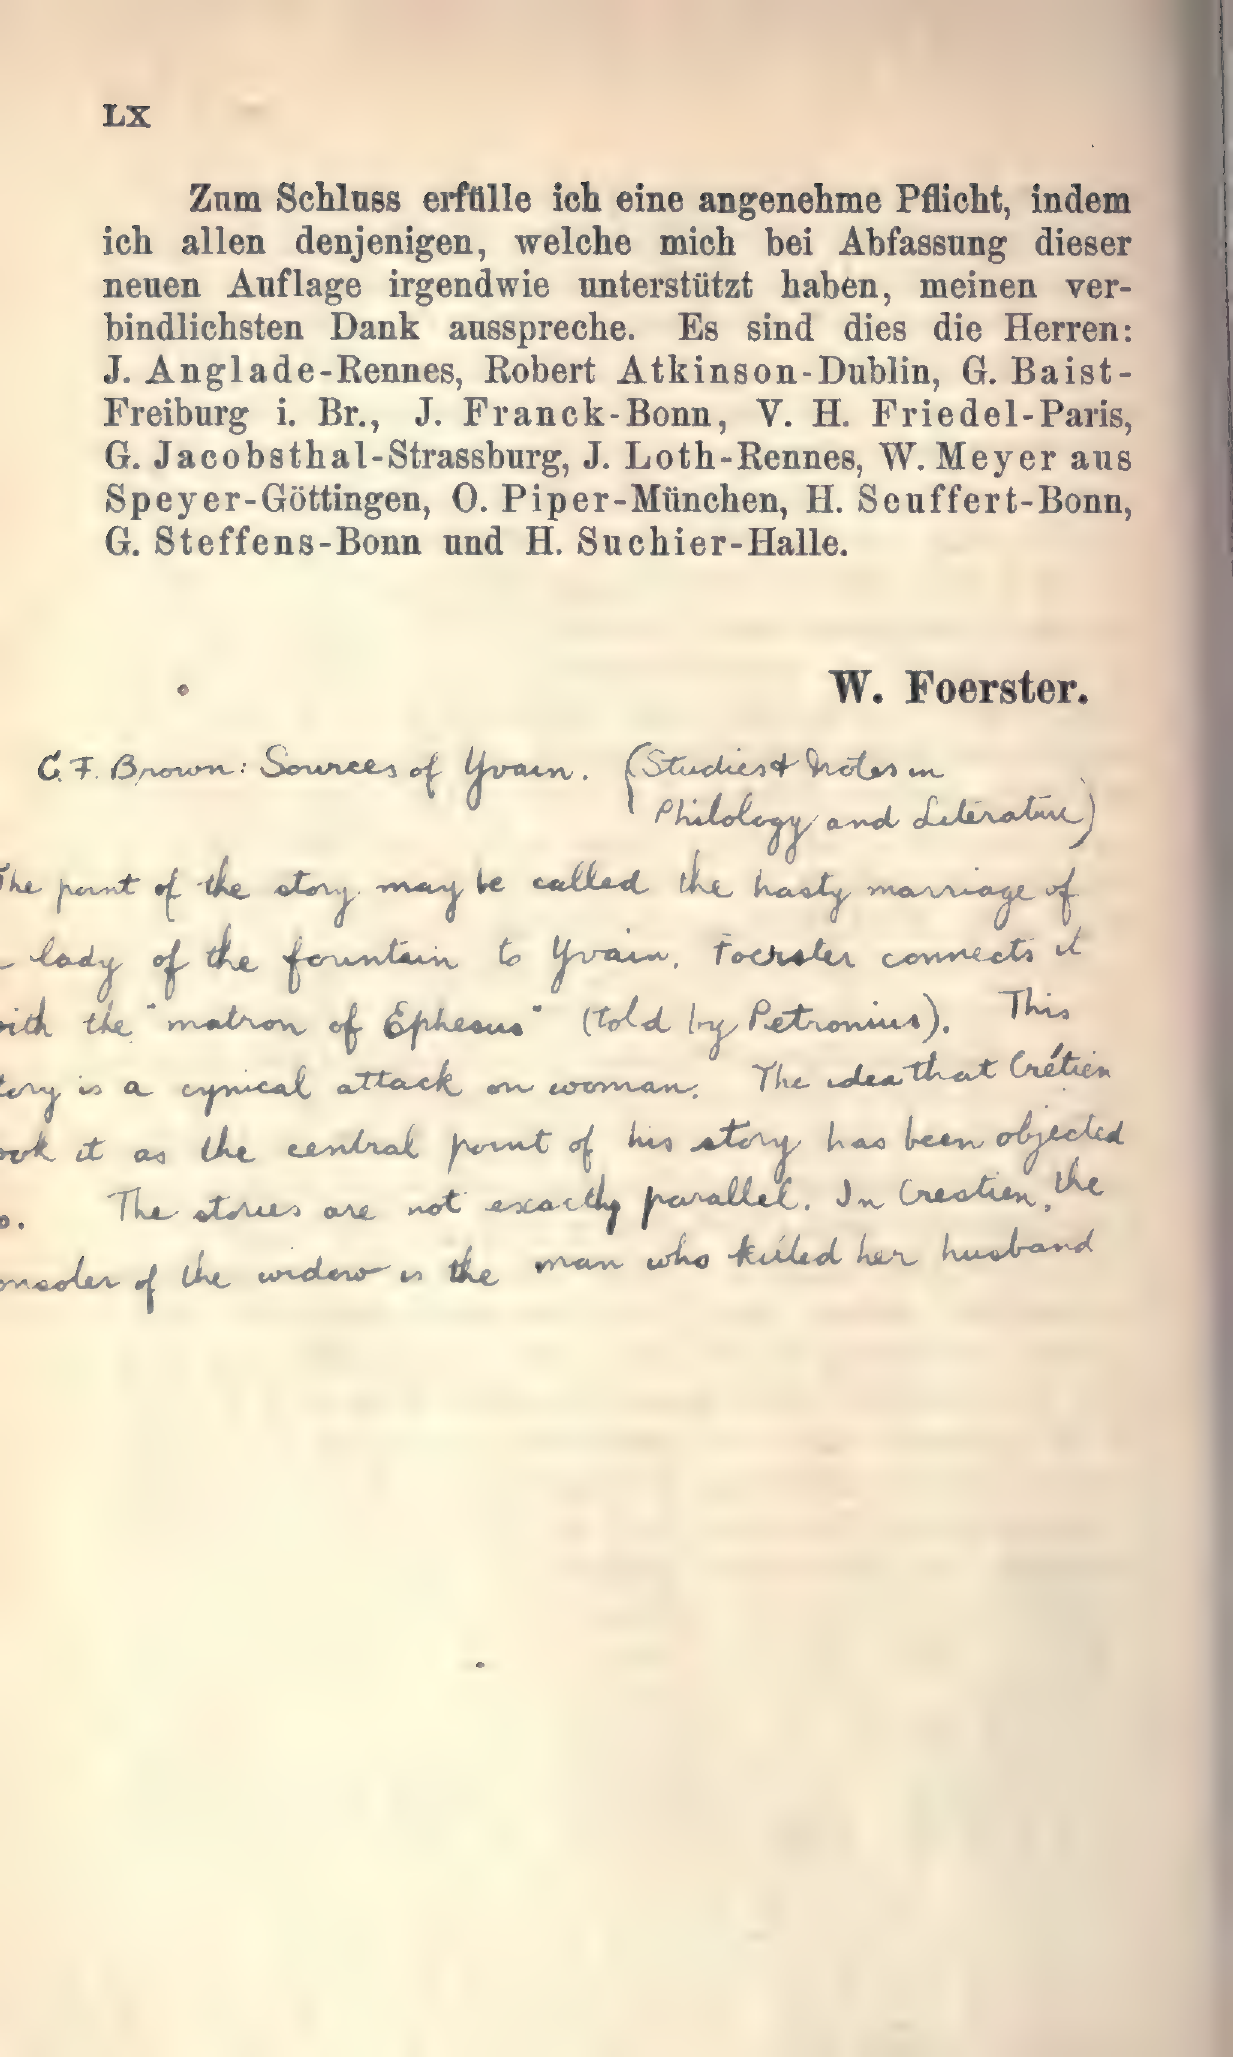 LX
Zum Schluss erfülle ich eine angenehme Pflicht, indem
ich allen denjenigen, welche mich bei Abfassung dieser
neuen Auflage irgendwie unterstützt haben, meinen ver-
bindlichsten Dank ausspreche. Es sind dies die Herren:
J. Anglade-Rennes, Robert Atkinson-Dublin, G. Baist-
Freiburg i. Br., J. Franck-Bonn, V. H. Friedel-Paris,
G. Jacobsthal-Strassburg, J. Loth-Rennes, W. Meyer aus
Speyer-Göttingen, O. Piper-München, H. Seuffert-Bonn,
G. Steffens-Bonn und H. Suchier-Halle.
W. Foerster.
C. F. Brown: Sources of Yvain. (Studies & Notes in
Philology and Literature)
The point of the story may be called the hasty marriage of
lady of the fountain to Yvain. Foerster connects it
with the "matron of Ephesus" (told by Petronius). This
tory is a cynical attack on woman. The idea that Crétien
ook it as the central point of his story has been objected
o. The stories are not exactly parallel. In Crestien, the
onsoler of the widow is the man who killed her husband